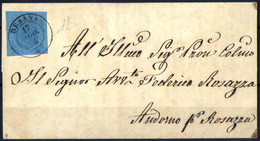 DESANA
17
All' Illmo Sigr Pron Colmo
Il Signor Avvto Federico Rosazza
Andorno pr Rosazza